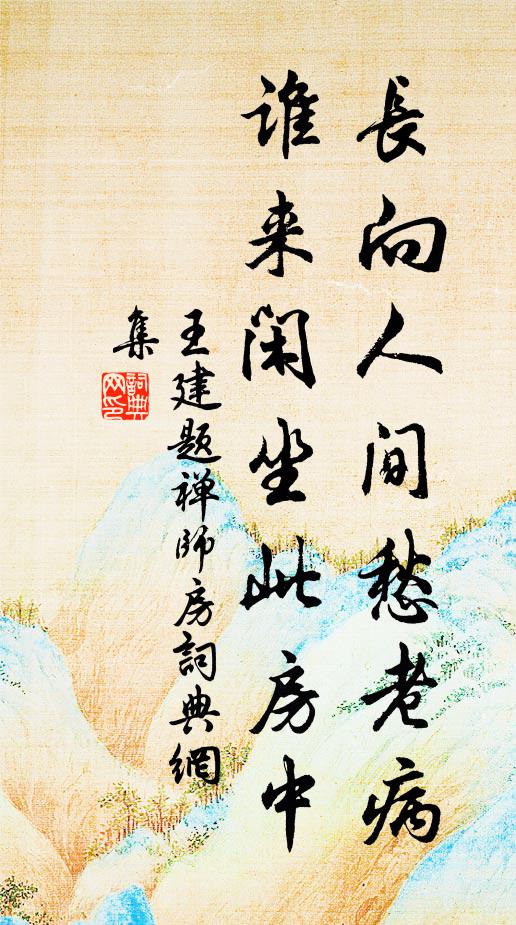 長向人间愁老病
谁来闲坐此房中
王建题禅师房詞典網
集
詞典
网印